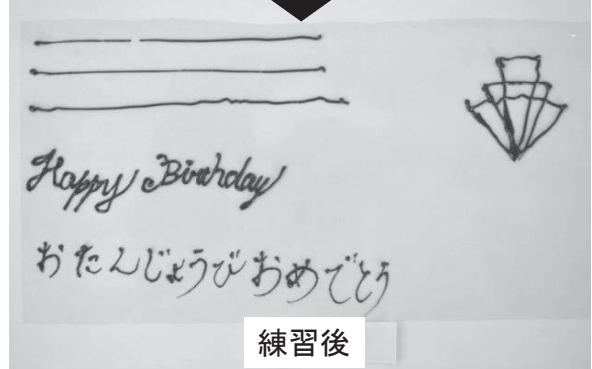 Happy Birthday
おたんじょうび おめでとう
練習後